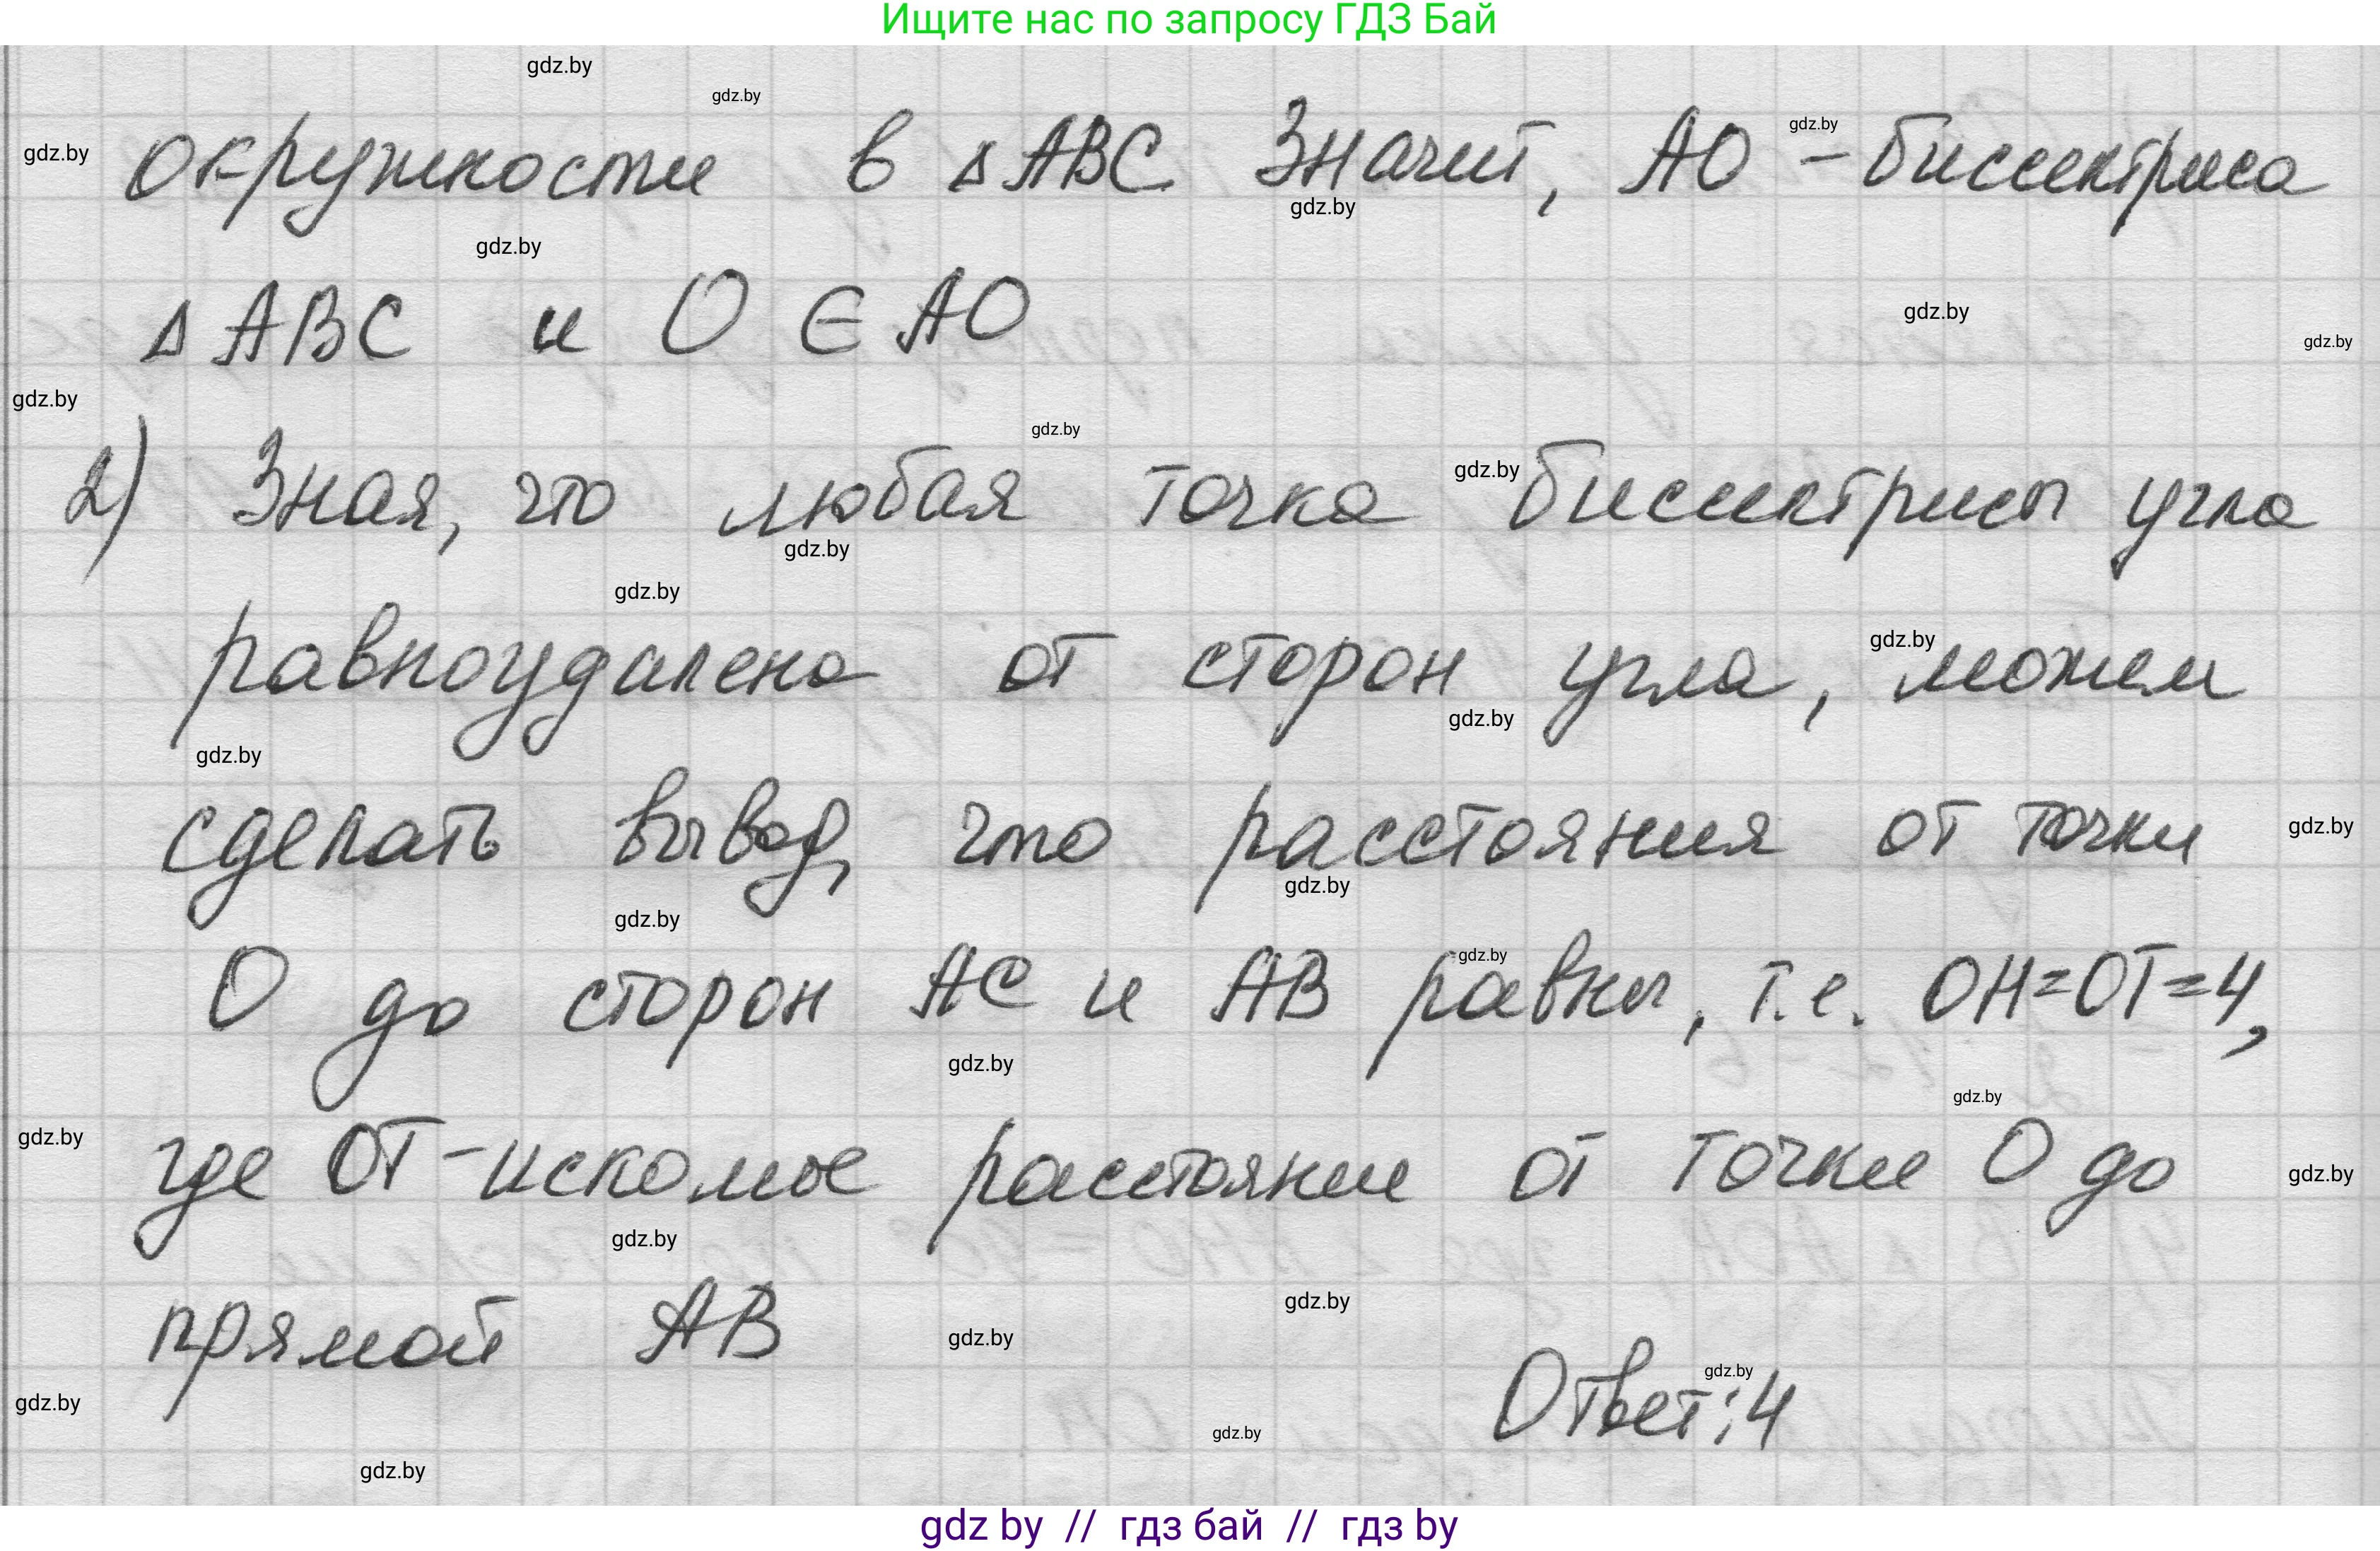 Ищите нас по запросу ГДЗ Бай
gdz.by
gdz.by
gdz.by
gdz.by
окружности в ΔABC. Значит, AO - биссектриса
gdz.by
gdz.by
ΔABC и O ∈ AO
gdz.by
gdz.by
gdz.by
gdz.by
gdz.by
2) Зная, что любая точка биссектрисы угла
gdz.by
gdz.by
gdz.by
равноудалена от сторон угла, можем
gdz.by
gdz.by
сделать вывод, что расстояния от точки
gdz.by
gdz.by
gdz.by
gdz.by
O до сторон AC и AB равны, т.е. OH=OT=4,
gdz.by
gdz.by
gdz.by
где OT - искомое расстояние от точки O до
gdz.by
gdz.by
gdz.by
прямой AB
gdz.by
gdz.by
Ответ: 4
gdz.by
gdz.by
gdz.by
gdz by // гдз бай // гдз by